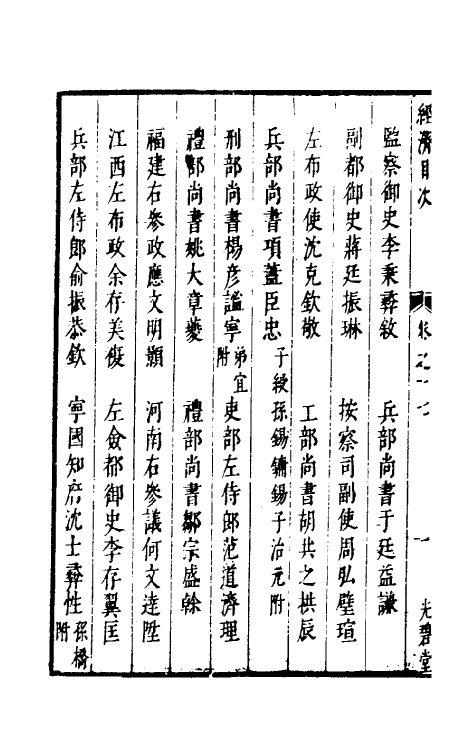 經濟目次
卷之十七
一
光碧堂
監察御史李秉彝敏
兵部尚書于廷益謙
副都御史蔣廷振琳
按察司副使周弘璧瑄
左布政使沈克欽敬
工部尚書胡共之拱辰
兵部尚書項藎臣忠
子綬孫錫鏞錫子治元附
刑部尚書楊彥謐寧
弟宜附
吏部左侍郎范道濟理
禮部尚書姚大章夔
禮部尚書鄒宗盛幹
福建右參政應文明顥
河南右參議何文達陞
江西左布政余存美復
左僉都御史李存翼匡
兵部左侍郎俞振恭欽
寧國知府沈士彝性
孫橋附